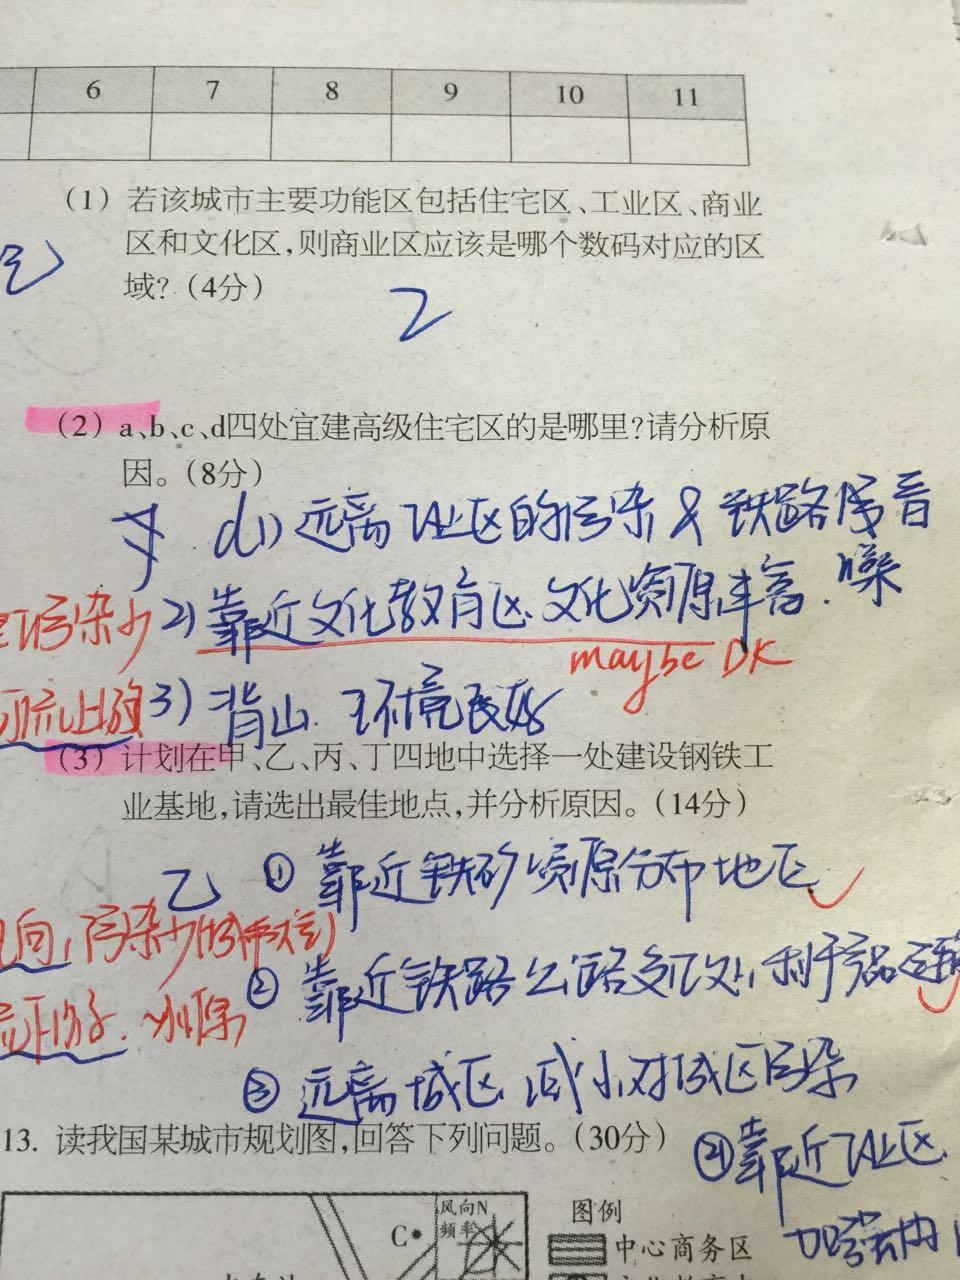 6 7 8 9 10 11
(1) 若该城市主要功能区包括住宅区、工业区、商业
区和文化区,则商业区应该是哪个数码对应的区
域?(4分)
2
(2) a、b、c、d四处宜建高级住宅区的是哪里?请分析原
因。(8分)
d 1) 远离工业区的污染 & 铁路噪音
污染少 2) 靠近文化教育区、文化资源丰富.
maybe DK
3) 背山、环境良好
(3) 计划在甲、乙、丙、丁四地中选择一处建设钢铁工
业基地,请选出最佳地点,并分析原因。(14分)
乙 ① 靠近铁矿资源分布地区
向,污染少(
② 靠近铁路公路交汇处,利于产品运输
③ 远离城区,减小对城区污染
13. 读我国某城市规划图,回答下列问题。(30分)
④靠近工业区
加强
风向N
频率
C
图例
中心商务区